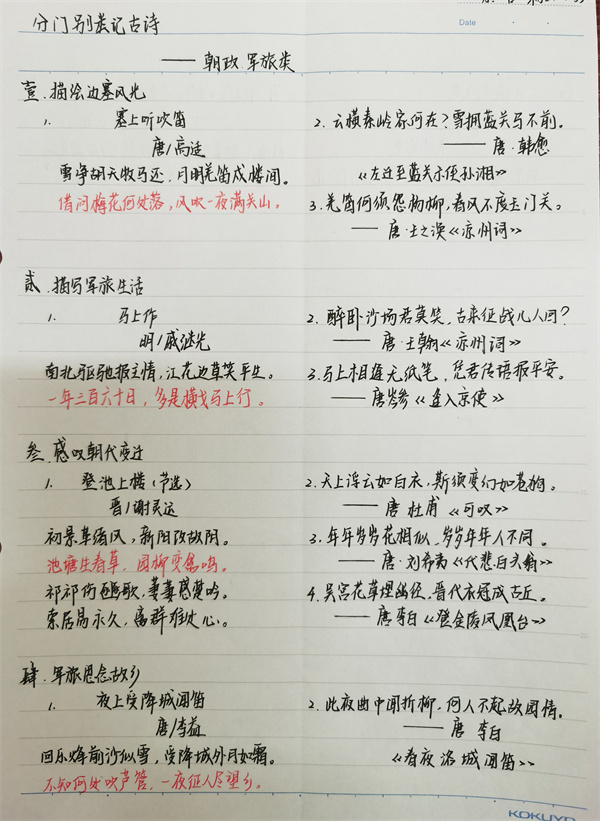 Date
分门别类记古诗
—— 朝政 军旅类
壹. 描绘边塞风光
1. 塞上听吹笛
唐/高适
雪净胡天牧马还，月明羌笛戍楼间。
借问梅花何处落，风吹一夜满关山。
2. 云横秦岭家何在？雪拥蓝关马不前。
—— 唐·韩愈
《左迁至蓝关示侄孙湘》
3. 羌笛何须怨杨柳，春风不度玉门关。
—— 唐·王之涣《凉州词》
贰. 描写军旅生活
1. 马上作
明/戚继光
南北驱驰报主情，江花边草笑平生。
一年三百六十日，多是横戈马上行。
2. 醉卧沙场君莫笑，古来征战几人回？
—— 唐·王翰《凉州词》
3. 马上相逢无纸笔，凭君传语报平安。
—— 唐岑参《逢入京使》
叁. 感叹朝代变迁
1. 登池上楼（节选）
晋/谢灵运
初景革绪风，新阳改故阴。
池塘生春草，园柳变鸣禽。
祁祁伤豳歌，萋萋感楚吟。
索居易永久，离群难处心。
2. 天上浮云如白衣，斯须变幻如苍狗。
—— 唐 杜甫《可叹》
3. 年年岁岁花相似，岁岁年年人不同。
—— 唐·刘希夷《代悲白头翁》
4. 吴宫花草埋幽径，晋代衣冠成古丘。
—— 唐 李白《登金陵凤凰台》
肆. 军旅思念故乡
1. 夜上受降城闻笛
唐/李益
回乐烽前沙似雪，受降城外月如霜。
不知何处吹芦管，一夜征人尽望乡。
2. 此夜曲中闻折柳，何人不起故园情。
—— 唐 李白
《春夜洛城闻笛》
KOKUYO